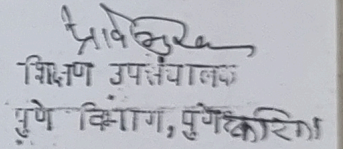 शिक्षण उपसंचालक
पुणे विभाग, पुणे करिता